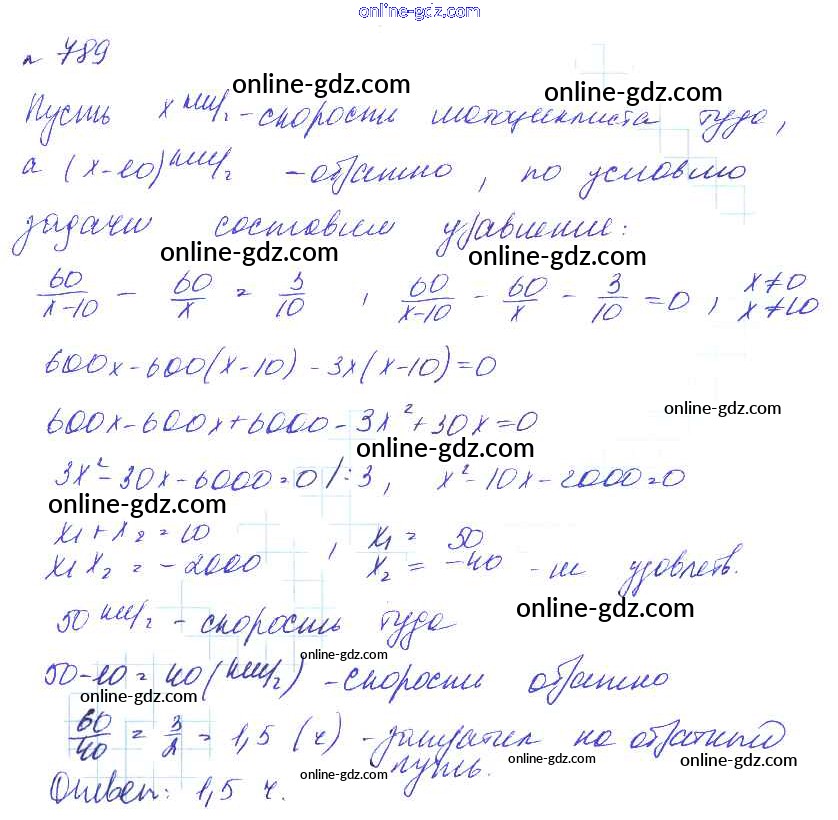 online-gdz.com
№ 789
online-gdz.com online-gdz.com
Пусть x км/ч - скорость мотоциклиста туда,
а (x-10) км/ч - обратно, по условию
задачи составим уравнение:
online-gdz.com online-gdz.com
60/(x-10) - 60/x = 3/10, 60/(x-10) - 60/x - 3/10 = 0, x≠0 x≠10
600x-600(x-10)-3x(x-10)=0
online-gdz.com
600x-600x+6000-3x²+30x=0
online-gdz.com
3x²-30x-6000=0 /:3, x²-10x-2000=0
online-gdz.com
x₁+x₂=10, x₁= 50
x₁x₂=-2000 x₂= -40 - не удовлетв.
online-gdz.com
50 км/ч - скорость туда
online-gdz.com
50-10=40 (км/ч) - скорость обратно
online-gdz.com online-gdz.com
60/40 = 3/2 = 1,5 (ч) - затратил на обратный
путь.
online-gdz.com online-gdz.com online-gdz.com
Ответ: 1,5 ч.
online-gdz.com